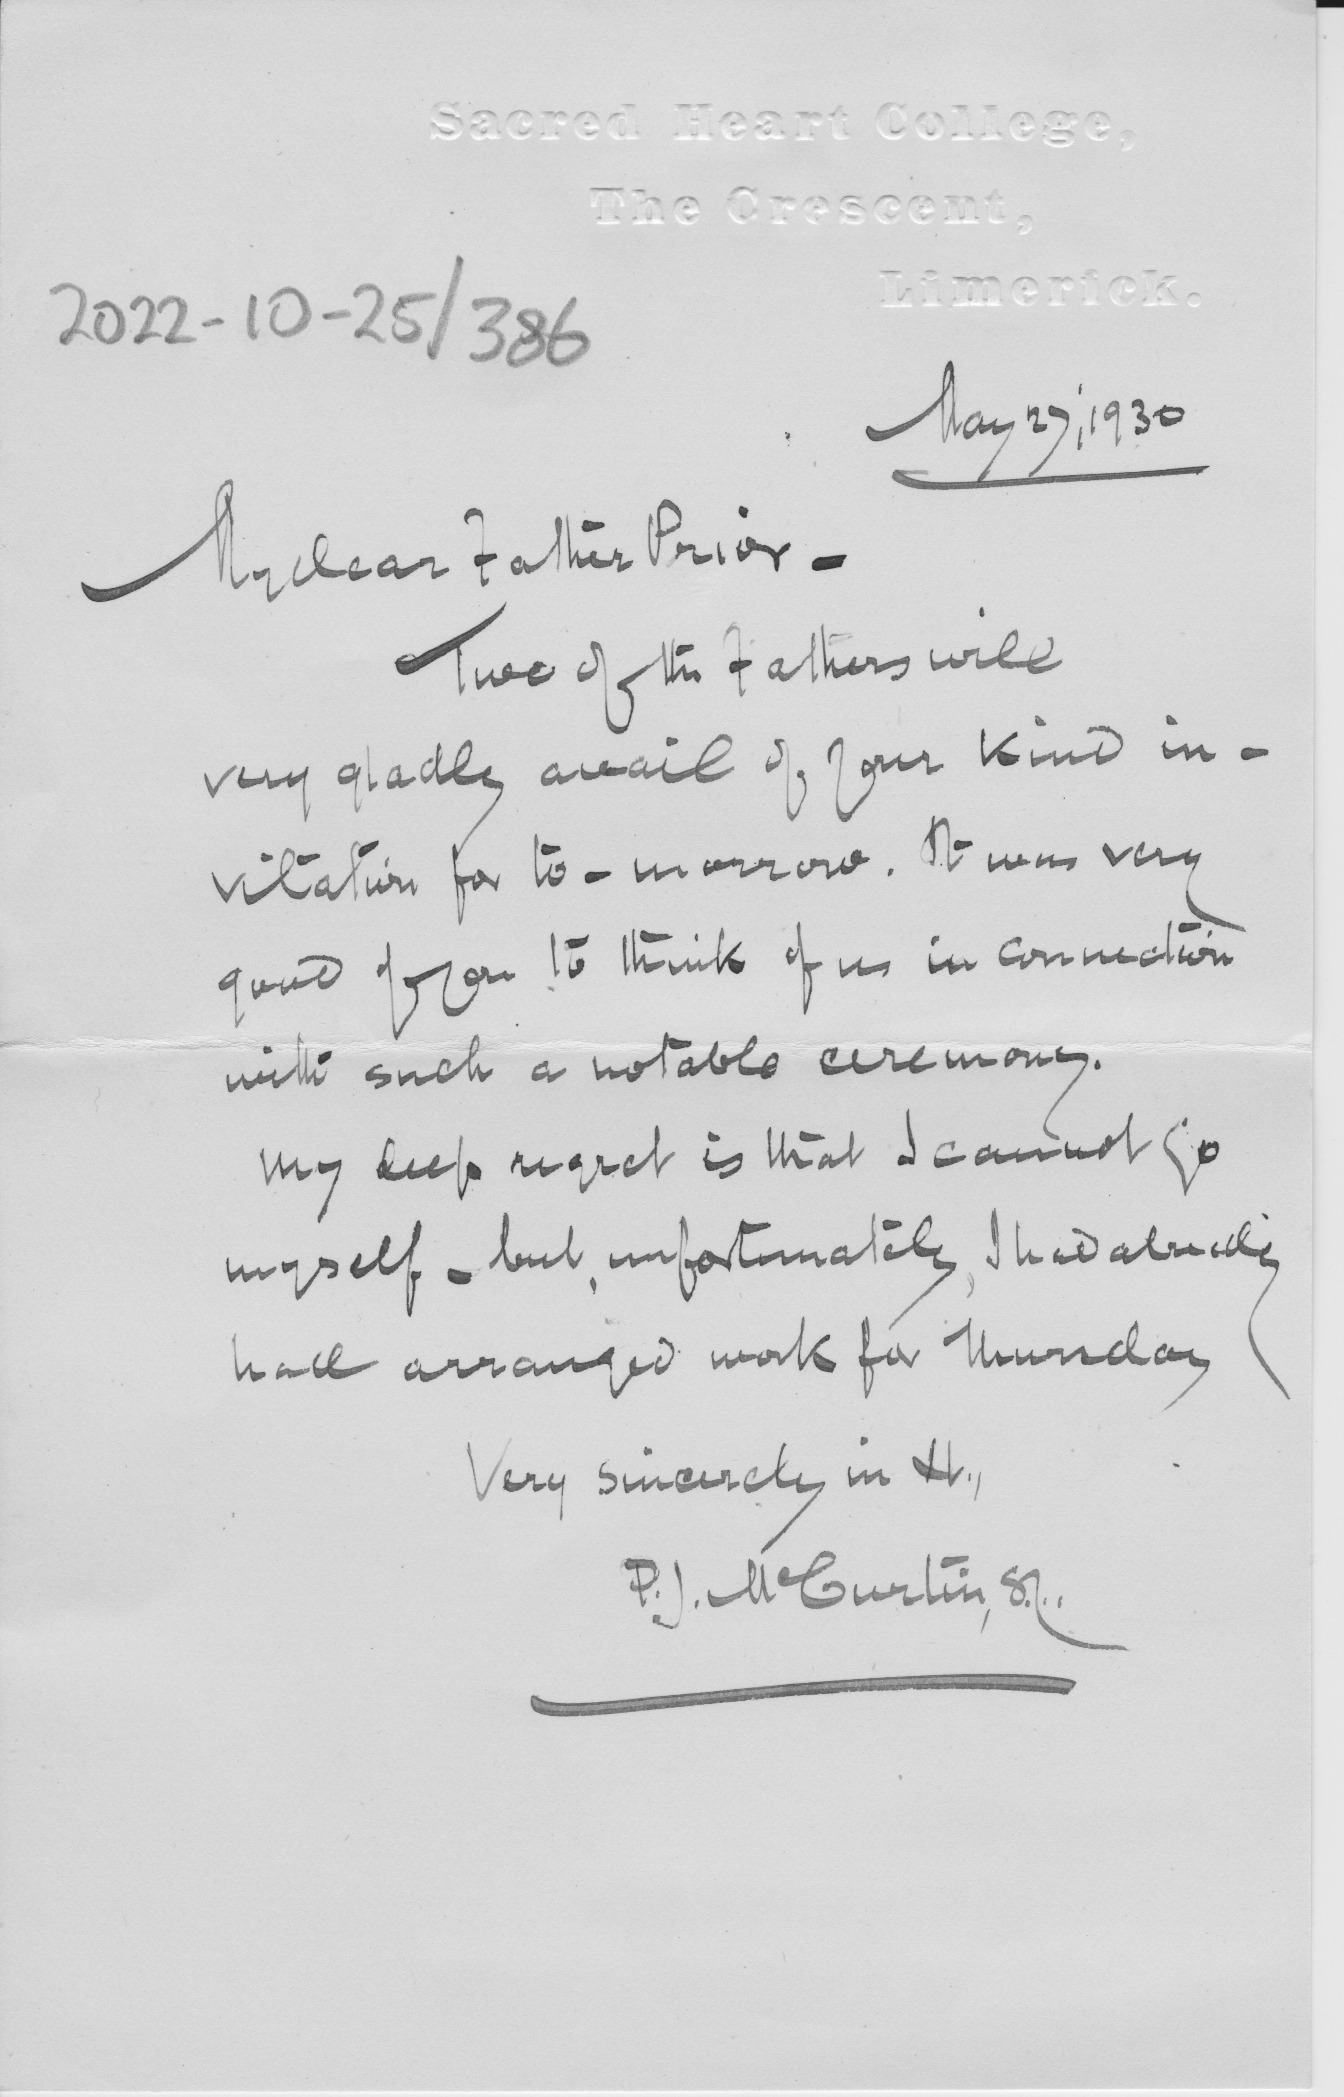 Sacred Heart College,
The Crescent,
Limerick.
2022-10-25/386
May 27, 1930
My dear Father Prior -
Two of the Fathers will
very gladly avail of your kind in-
vitation for to-morrow. It was very
good of you to think of us in connection
with such a notable ceremony.
My deep regret is that I cannot go
myself - but, unfortunately, I had already
had arranged work for Thursday
Very sincerely in Xt.,
P.J. McCurtin, S.J.